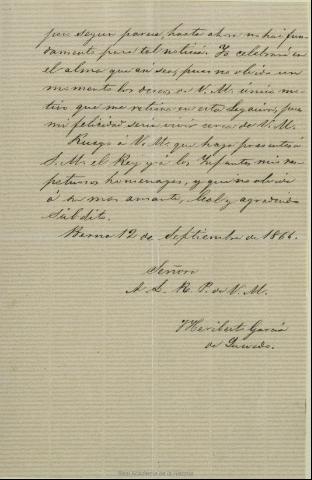 pero segun parece, hasta ahora no hai fun-
damento para tal noticia. Yo celebraré en
el alma que asi sea, pues no olvido un
momento los deseos de V. M. único mo-
tivo que me retiene en esta Legacion, pues
mi felicidad seria vivir cerca de V. M.
Ruego á V. M. que haga presentes á
S. M. el Rey y á los Infantes mis res-
petuosos homenages, y que no olvide
á su mas amante, leal y agradecido
Súbdito.
Berna 12 de Septiembre de 1866.
Señora
A L. R. P. de V. M.
Heribert Garcia
de Quevedo.
Real Academia de la Historia